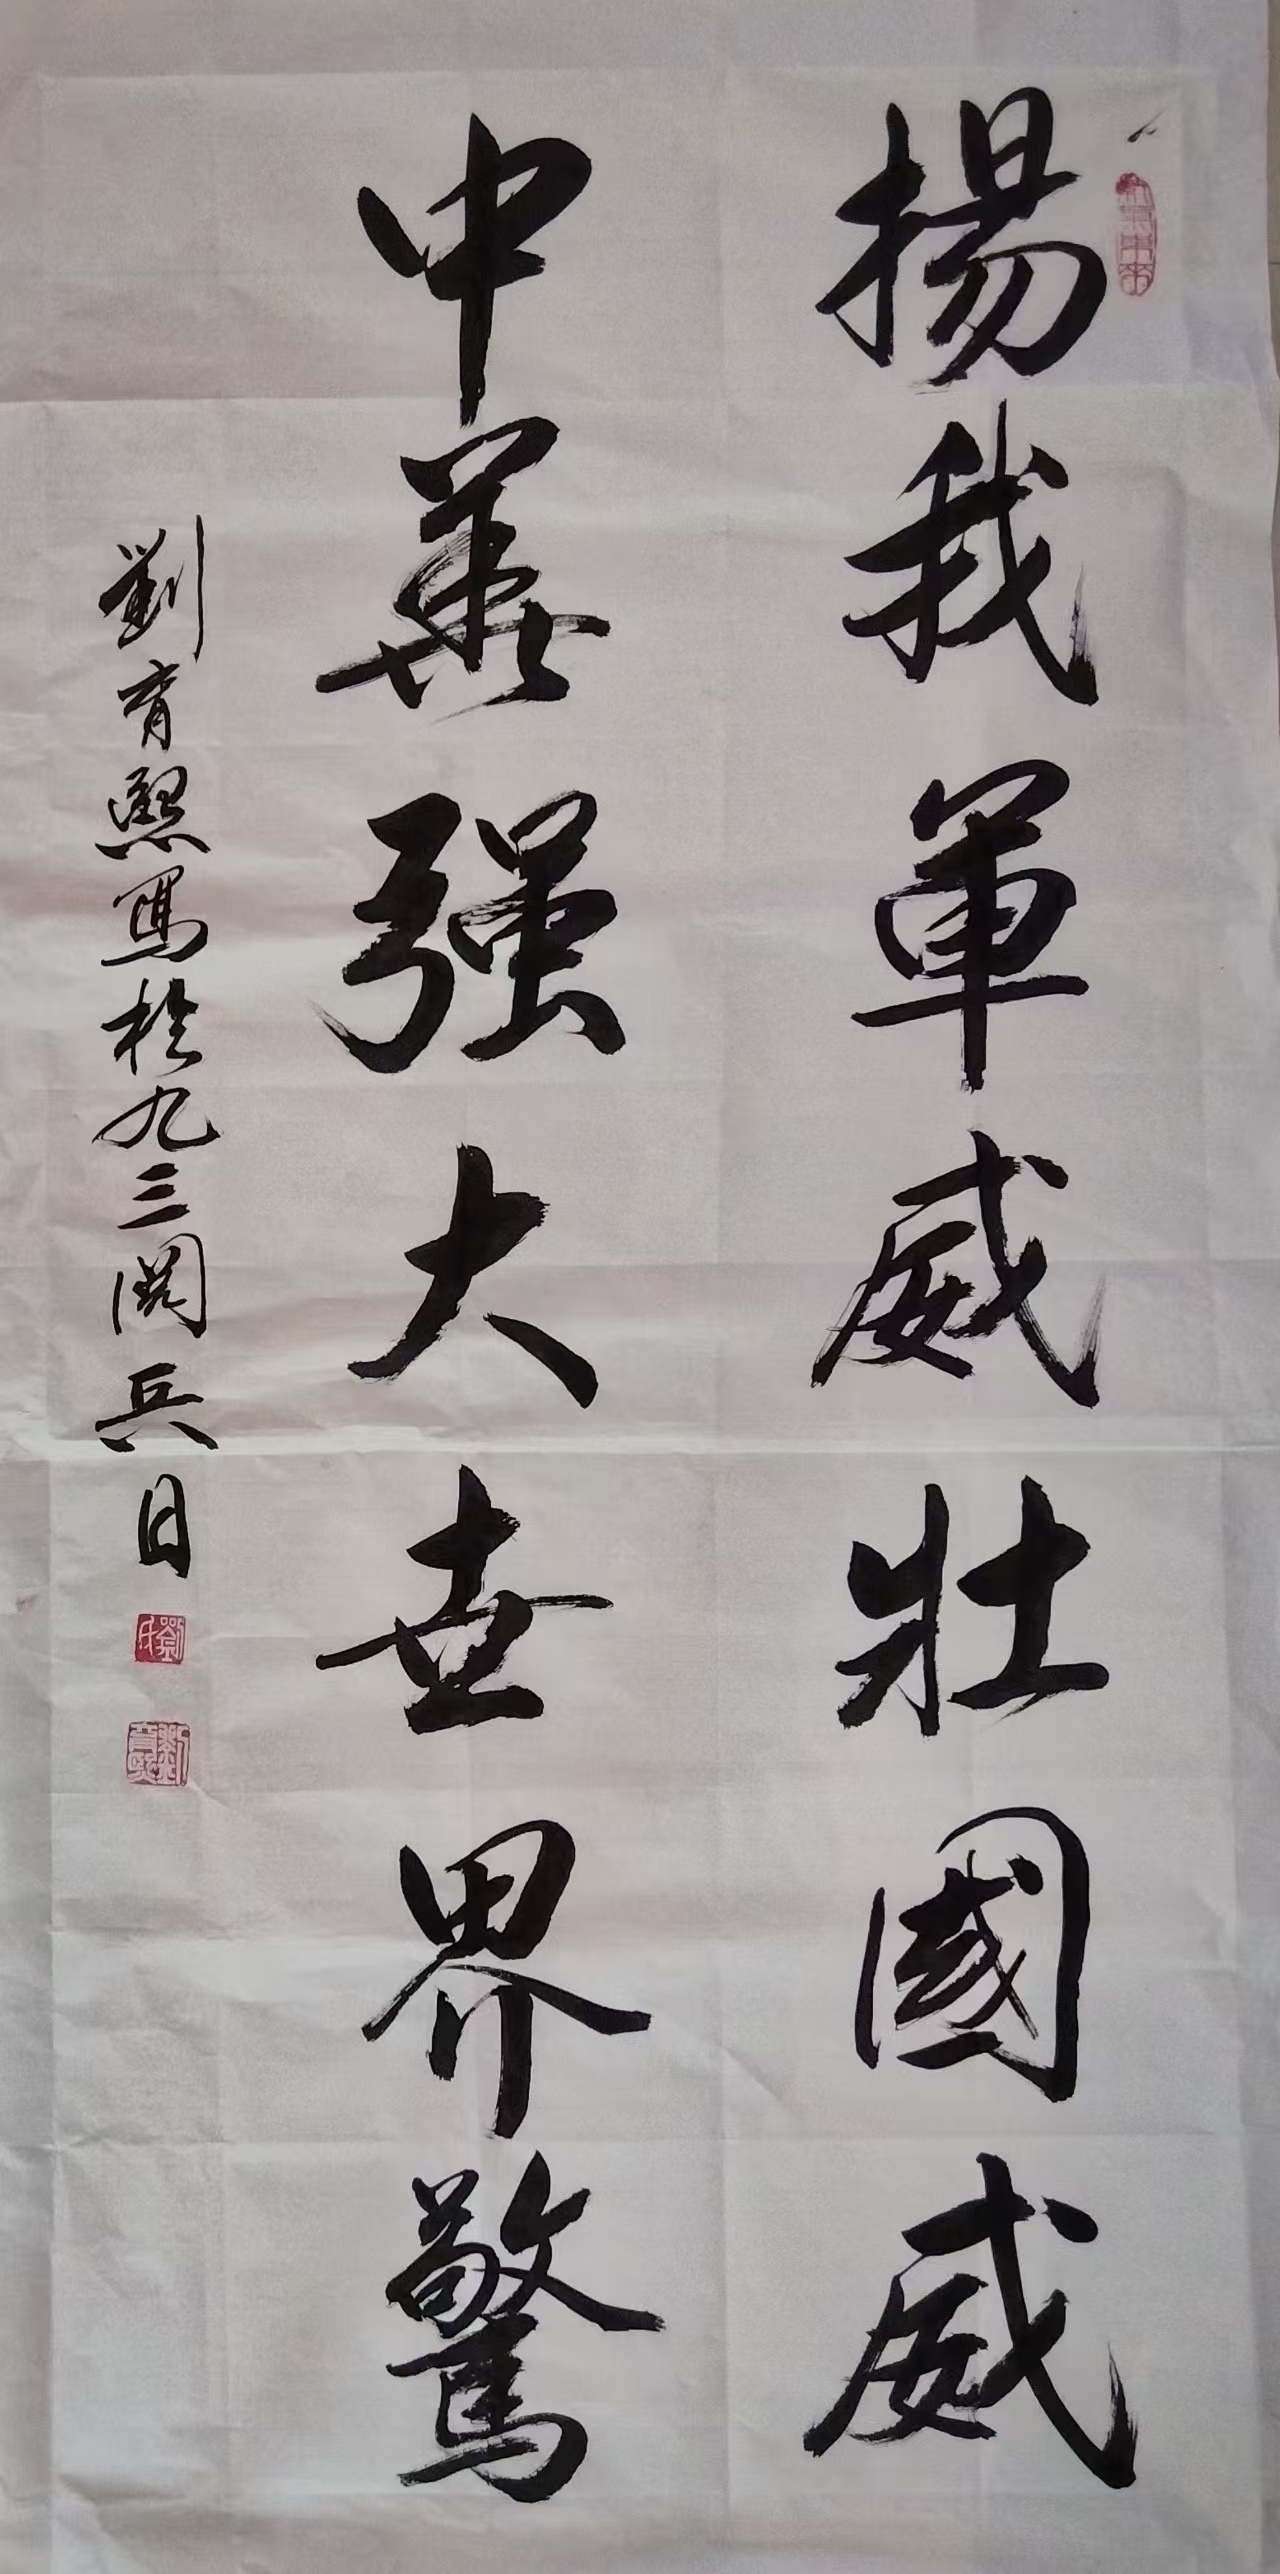 揚我軍威壯國威
中華强大世界驚
劉育熙寫於九三閲兵日